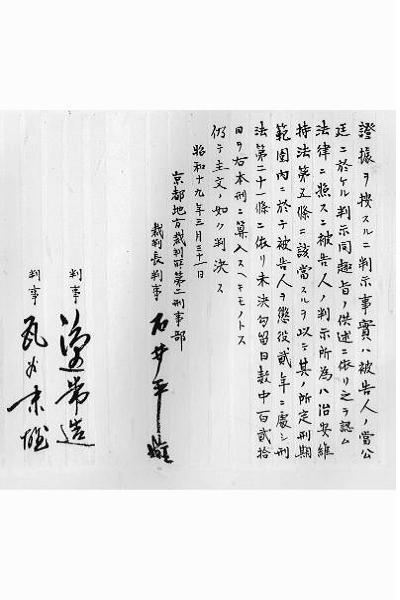 證據ヲ按スルニ判示事實ハ被告人ノ當公
廷ニ於ケル判示同趣旨ノ供述ニ依リ之ヲ認ム
法律ニ照スニ被告人ノ判示所為ハ治安維
持法第五條ニ該當スルヲ以テ其ノ所定刑期
範囲内ニ於テ被告人ヲ懲役貳年ニ處シ刑
法第二十一條ニ依リ未決勾留日數中百貳拾
日ヲ右本刑ニ算入スヘキモノトス
仍テ主文ノ如ク判決ス
昭和十九年三月三十一日
京都地方裁判所第二刑事部
裁判長判事 石井平雄
判事 常造
判事 末雄